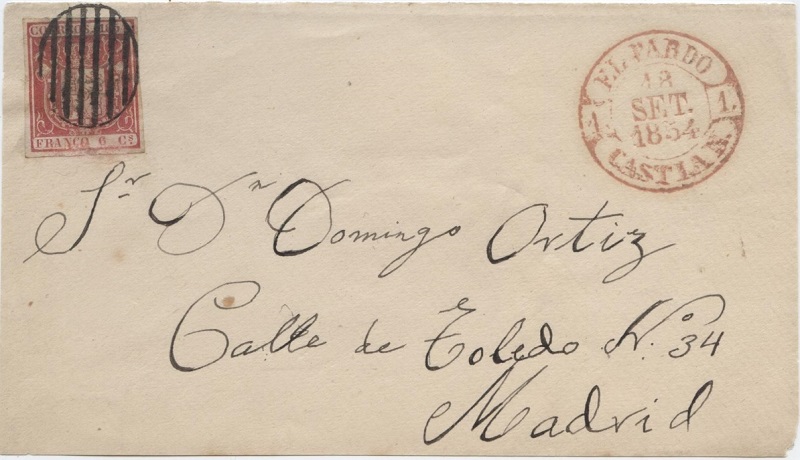 CORREOS 1854
FRANCO 6 Cs
EL PARDO
18
SET.
1854
1. 1.
CASTLA N.
Sr. Dn Domingo Ortiz
Calle de Toledo N.º 34
Madrid